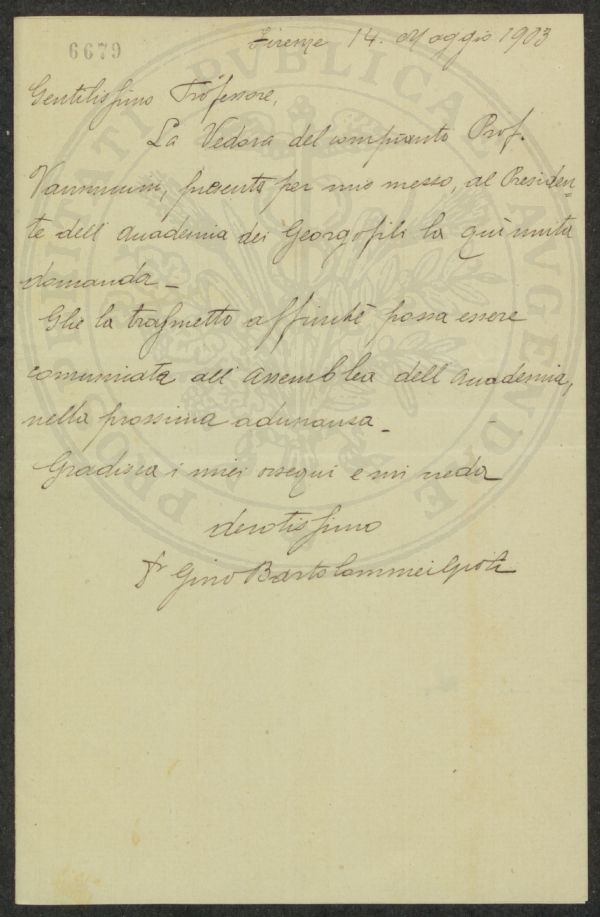 6679
Firenze 14. Maggio 1903
Gentilissimo Professore,
La Vedova del compianto Prof.
Vannuccini, presenta per mio mezzo, al Presiden-
te dell' Accademia dei Georgofili la quì unita
domanda_
Glie la trasmetto affinchè possa essere
comunicata all' Assemblea dell' Accademia,
nella prossima adunanza_
Gradisca i miei ossequi e mi creda
devotissimo
Dr Gino Bartolommei Gioli
PROSPERITATI PVBLICAE AVGENDAE